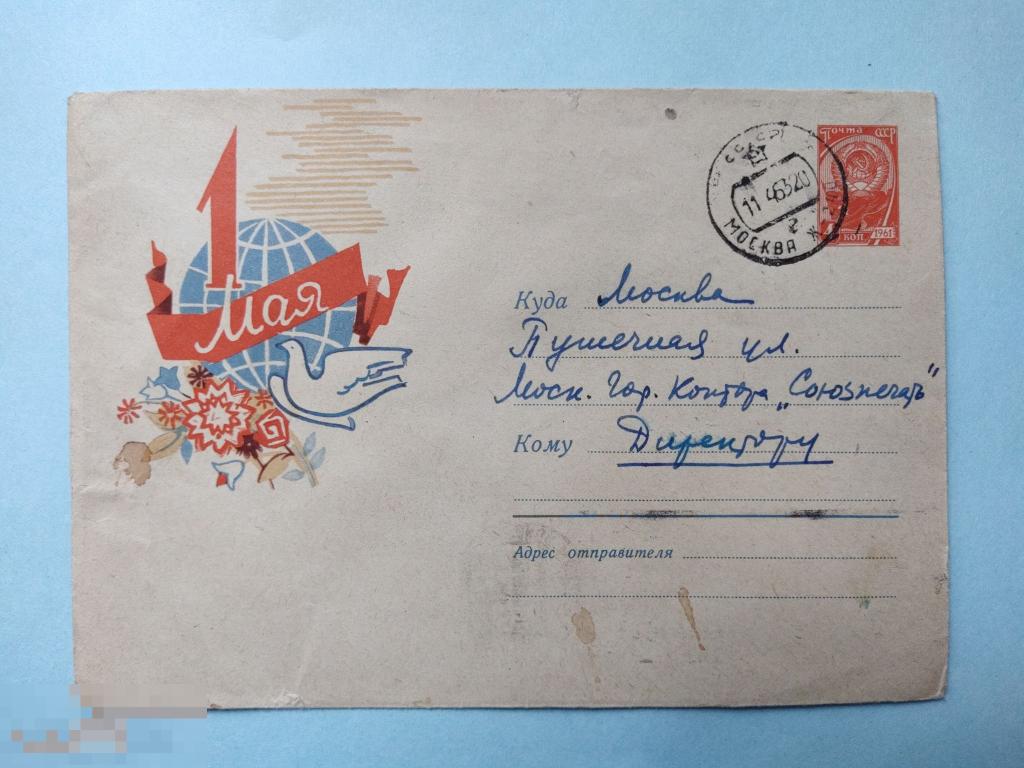 1
Мая
Почта СССР
коп. 1961
СССР
11 46320
МОСКВА Ж
Куда Москва
Пушечная ул.
Моск. Гор. Контора „Союзпечать"
Кому Директору
Адрес отправителя